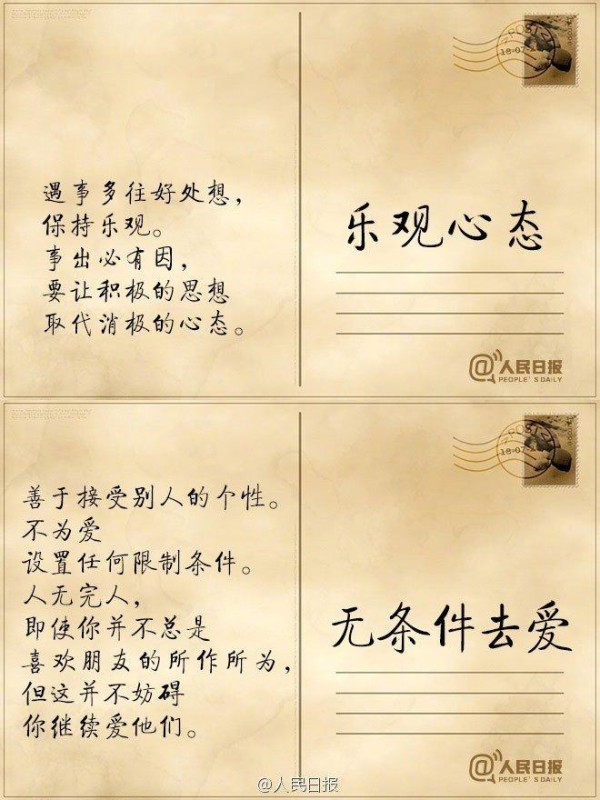 POST
18-07
遇事多往好处想，
保持乐观。
事出必有因，
要让积极的思想
取代消极的心态。
乐观心态
@人民日报
PEOPLE'S DAILY
POST
18-07
善于接受别人的个性。
不为爱
设置任何限制条件。
人无完人，
即使你并不总是
喜欢朋友的所作所为，
但这并不妨碍
你继续爱他们。
无条件去爱
@人民日报
PEOPLE'S DAILY
@人民日报